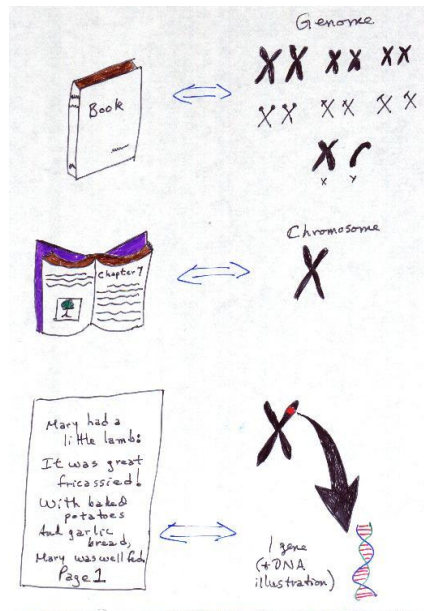 Genome
Book
x
y
Chromosome
Chapter 7
Mary had a
little lamb:
It was great
fricassied!
With baked
potatoes
And garlic
bread,
Mary was well fed.
Page 1
1 gene
(* DNA
illustration)